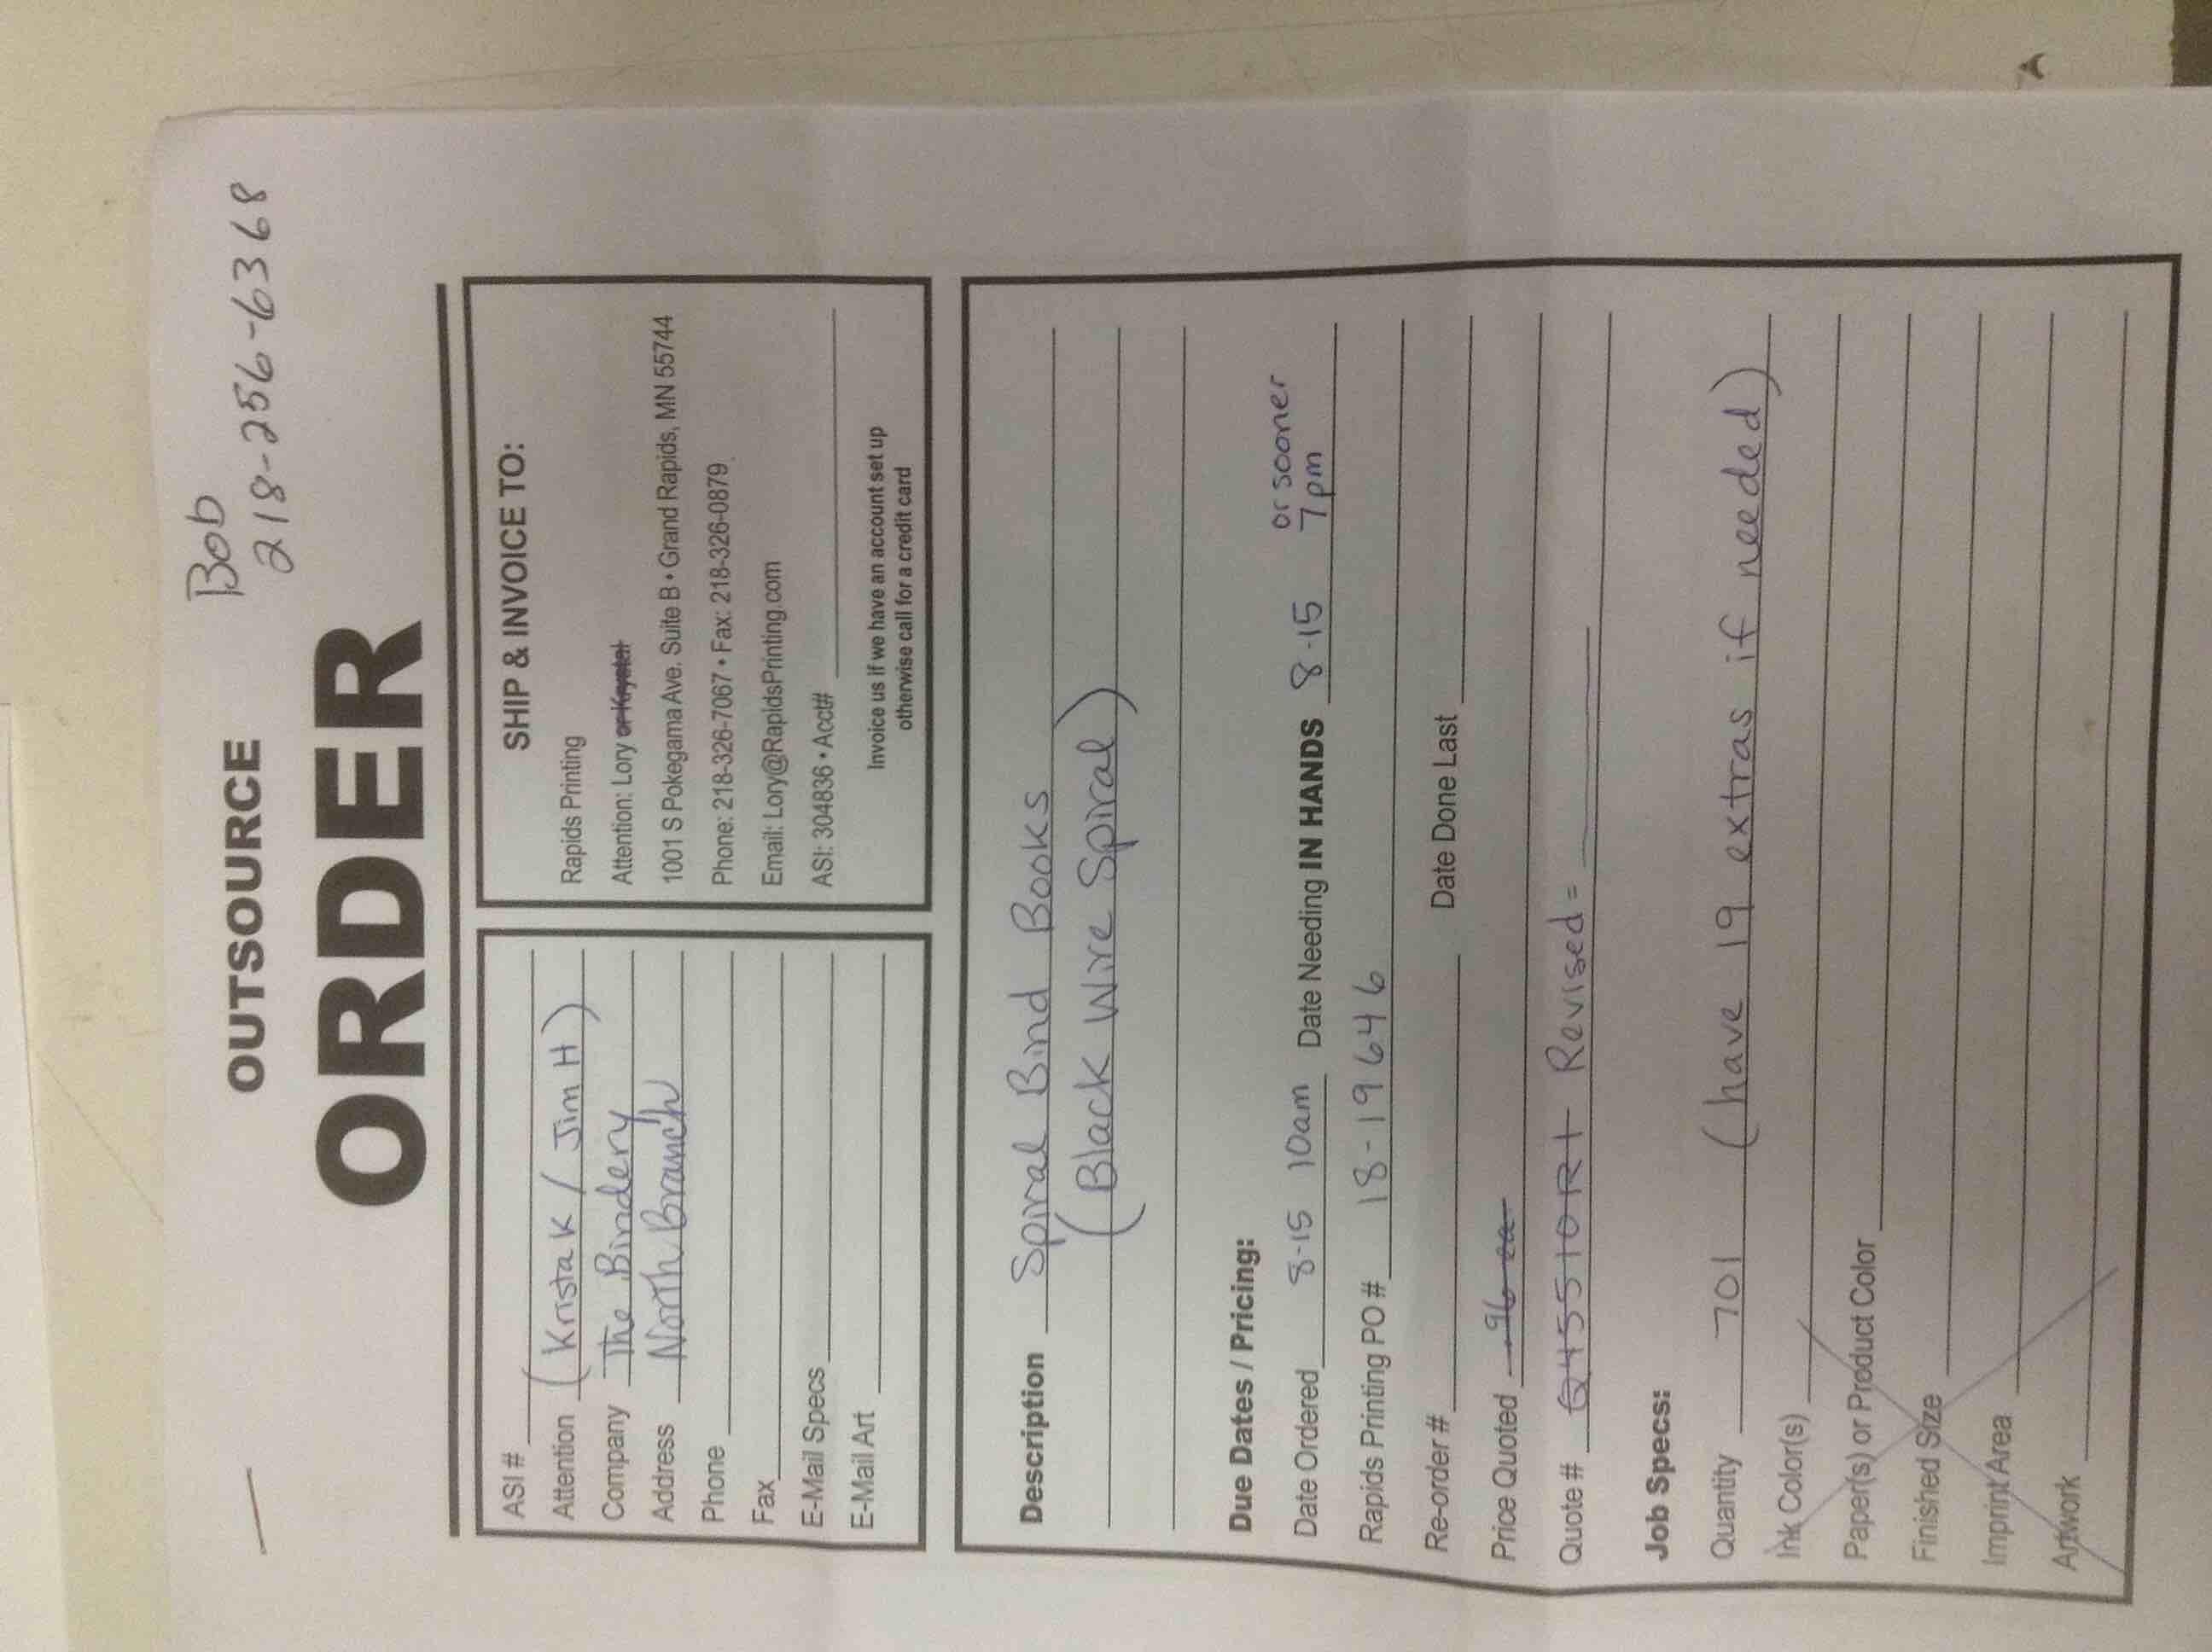 Bob
218-256-6368
OUTSOURCE
ORDER
ASI #
Attention (Krista K / Jim H)
Company The Bindery
Address North Branch
Phone
Fax
E-Mail Specs
E-Mail Art
SHIP & INVOICE TO:
Rapids Printing
Attention: Lory or Krystal
1001 S Pokegama Ave. Suite B • Grand Rapids, MN 55744
Phone: 218-326-7067 • Fax: 218-326-0879
Email: Lory@RapidsPrinting.com
ASI: 304836 • Acct#
Invoice us if we have an account set up
otherwise call for a credit card
Description Spiral Bind Books
(Black Wire Spiral)
Due Dates / Pricing:
or sooner
Date Ordered 8-15 10am Date Needing IN HANDS 8-15 7pm
Rapids Printing PO # 18-19646
Re-order # Date Done Last
Price Quoted .96 ea.
Quote # Revised =
Job Specs:
Quantity 701 (have 19 extras if needed)
Ink Color(s)
Paper(s) or Product Color
Finished Size
Imprint Area
Artwork